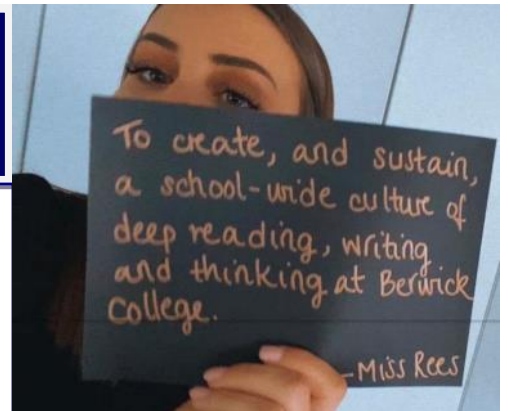 To create, and sustain,
a school-wide culture of
deep reading, writing
and thinking at Berwick
College.
-Miss Rees